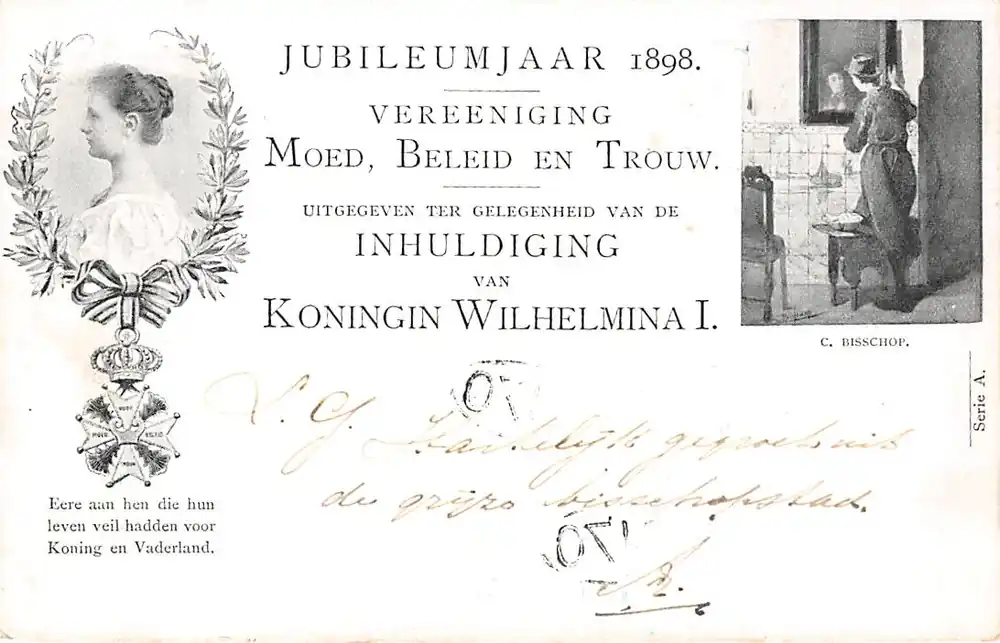 JUBILEUMJAAR 1898.
VEREENIGING
MOED, BELEID EN TROUW.
UITGEGEVEN TER GELEGENHEID VAN DE
INHULDIGING
VAN
KONINGIN WILHELMINA I.
C. BISSCHOP.
Serie A.
MOED
BELEID
TROUW
Eere aan hen die hun
leven veil hadden voor
Koning en Vaderland.
Hartelijk gegroet uit
de grijze bisschopstad.